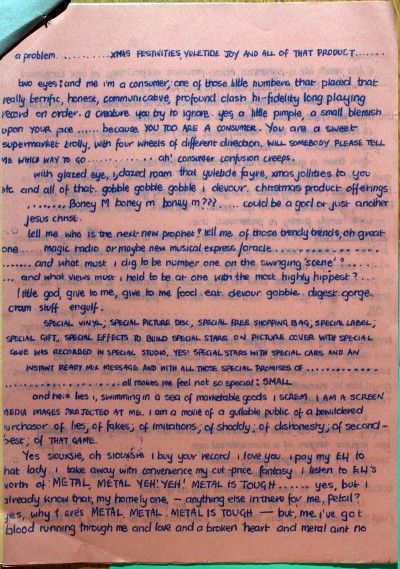 a problem............XMAS FESTIVITIES YULETIDE JOY AND ALL OF THAT PRODUCT.......
two eyes; and me i'm a consumer; one of those little numbers that placed that
really terrific, honest, communicative, profound clash hi-fidelity long playing
record on order. a creature you try to ignore. yes a little pimple, a small blemish
upon your face ...... because YOU TOO ARE A CONSUMER. You are a sweet
supermarket trolly, with four wheels of different direction. WILL SOMEBODY PLEASE TELL
ME WHICH WAY TO GO ............... ah' consumer confusion creeps.
with glazed eye, dazed roam that yuletide fayre, xmas jollities to you
etc and all of that. gobble gobble gobble i devour. christmas product offerings
....... Boney M boney m boney m??? ..... could be a god or just another
jesus christ.
tell me who is the next new prophet? tell me of those trendy trends, oh great
one ....... magic radio or maybe new musical express /oracle ................
....... and what must i dig to be number one on the swinging 'scene'? ......
... and what views must i hold to be at one with the most highly hippest? ...
little god, give to me, give to me food eat. devour gobble. digest gorge.
cram stuff engulf.
SPECIAL VINYL; SPECIAL PICTURE DISC, SPECIAL FREE SHOPPING BAG, SPECIAL LABEL;
SPECIAL GIFT; SPECIAL EFFECTS TO BUILD SPECIAL STARS ON PICTURE COVER WITH SPECIAL
GLUE WAS RECORDED IN SPECIAL STUDIO. YES! SPECIAL STARS WITH SPECIAL CARS AND AN
INSTANT READY MIX MESSAGE AND WITH ALL THOSE SPECIAL PROMISES OF ...............
.......................... all makes me feel not so special: SMALL
and here lies i, swimming in a sea of marketable goods I SCREAM. I AM A SCREEN
MEDIA IMAGES PROJECTED AT ME. I am a movie of a gullable public of a bewildered
purchasor of lies, of fakes, of imitations, of shoddy, of dishonesty, of second-
best, OF THAT GAME.
Yes siouxsie, oh siouxsie i buy your record i love you. i pay my £4 to
that lady. i take away with convenience my cut-price fantasy i listen to £4's
worth of METAL, METAL YEH! YEH! METAL IS TOUGH ....... yes, but i
already know that, my homely one, — anything else in there for me, petal?
yes, why there's METAL. METAL. METAL IS TOUGH — but, me i've got
blood running through me and love and a broken heart and metal aint no